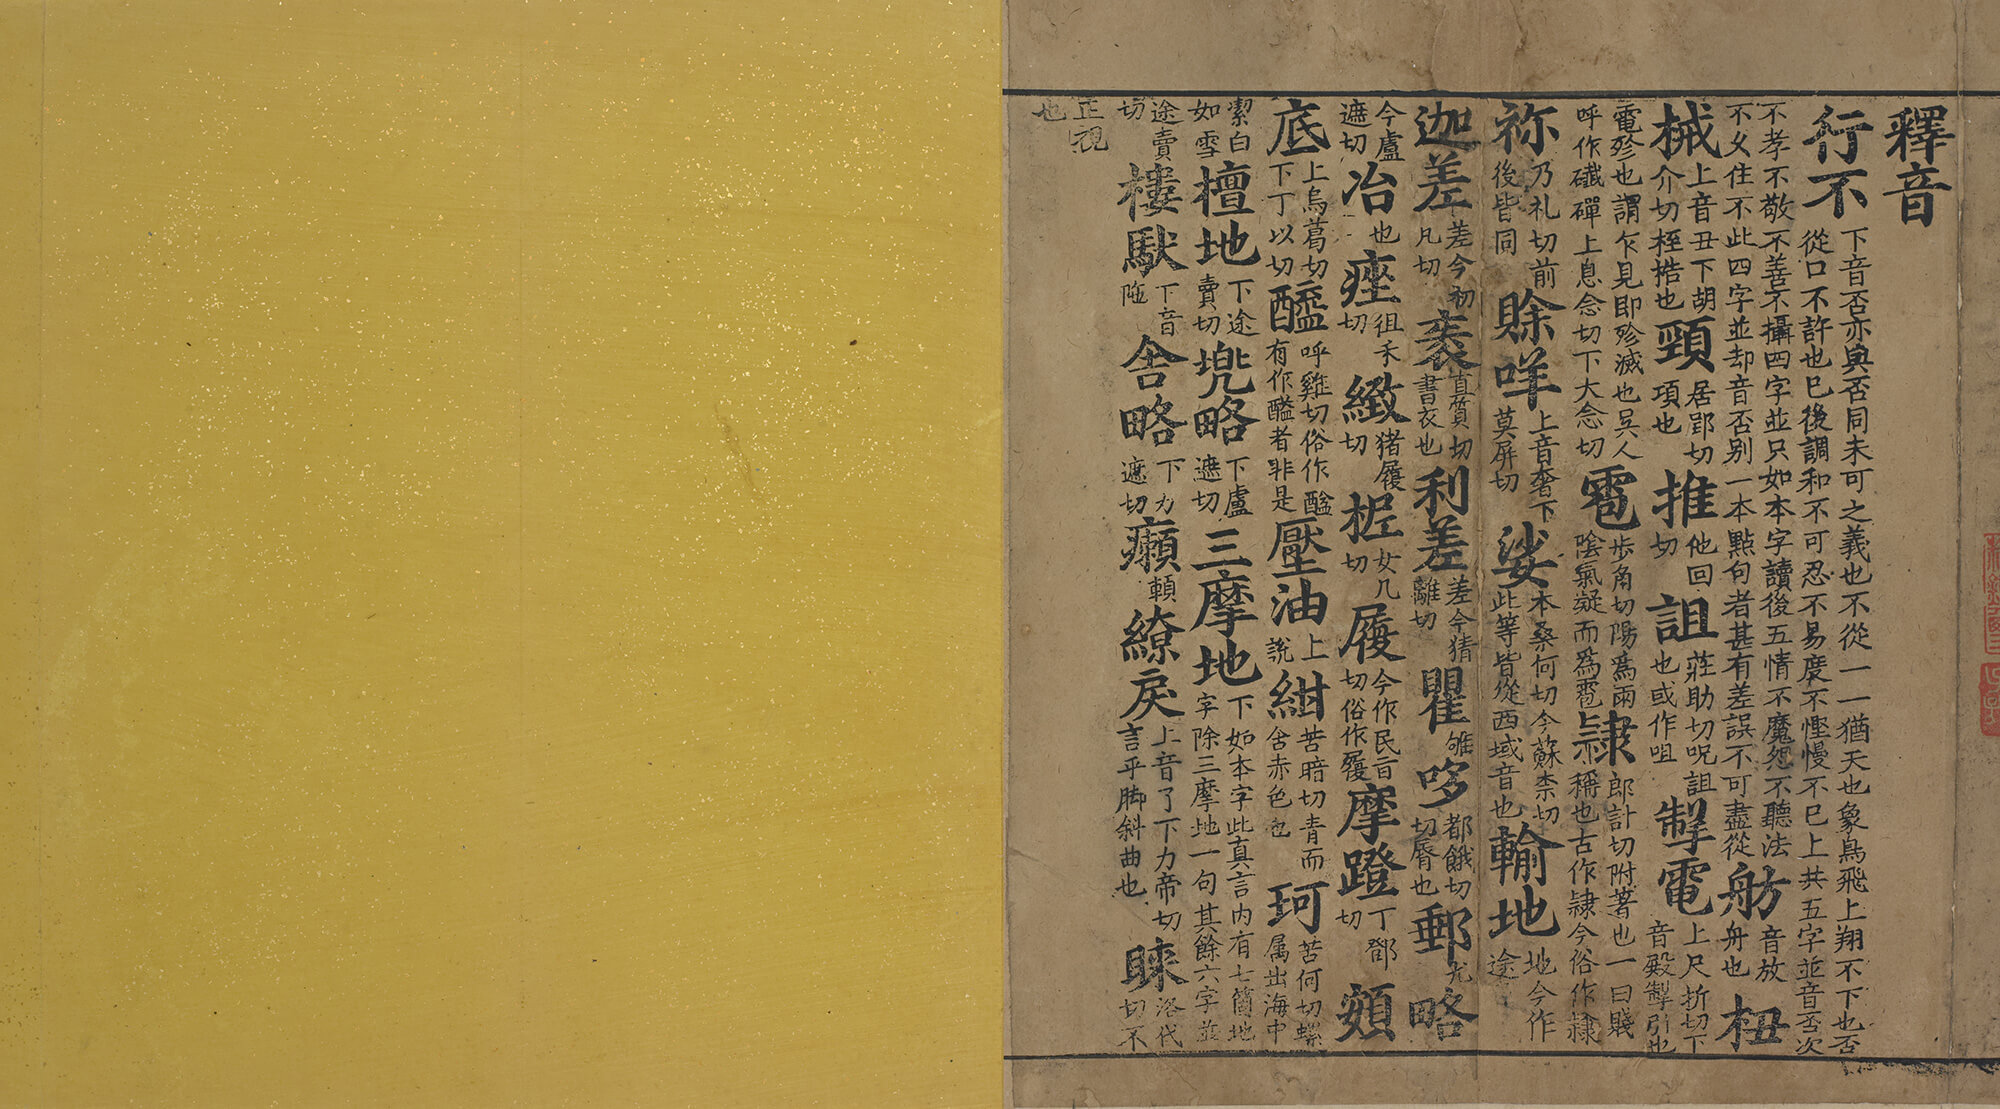 釋音
行不下音否亦與否同未可之義也不從一一猶天也象鳥飛上翔不下也否從口不許也已後調和不可忍不易度不慳慢不已上共五字並音否次
不孝不敬不善不攝四字並只如本字讀後五情不魔怨不聽法不久住不此四字並却音否别一本點句者甚有差誤不可盡從舫音放舟也杻
械上音丑下胡介切桎梏也頸居郢切項也推他回切詛莊助切呪詛也或作咀掣電上尺折切下音殿掣引也
電殄也謂乍見即殄滅也吳人呼作䃸磹上息念切下大念切雹步角切陽為雨陰氣凝而為雹隷郎計切附著也一曰賤稱也古作隷今俗作隸
祢乃礼切前後皆同賒咩上音奢下莫屏切娑本桑何切今蘇柰切此等皆從西域音也輸地地今作途
迦差差今初凡切袠直質切書衣也利差差今猜離切瞿雊哆都餓切切脣也郵尤略
今盧遮切冶也痤徂禾切緻猪履切柅女几切履今作民旨切俗作履摩蹬丁鄧切頞
底上烏葛切下丁以切醯呼雞切俗作醓有作醯者非是壓油上説紺苦暗切青而含赤色也珂苦何切螺属出海中
潔白如雪檀地下途賣切兠略下盧遮切三摩地下如本字此真言内有七箇地字除三摩地一句其餘六字並
途賣切棲䭾下音陁舍略下力遮切癩賴繚戾上音了下力帝切言乎脚斜曲也睞洛代切不
正視也